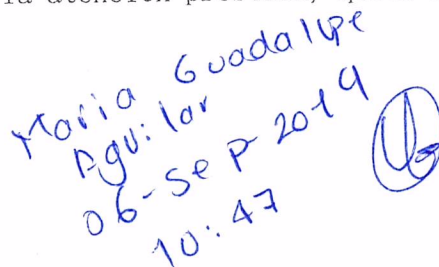 Maria Guadalupe
Aguilar
06-sep-2019
10:47